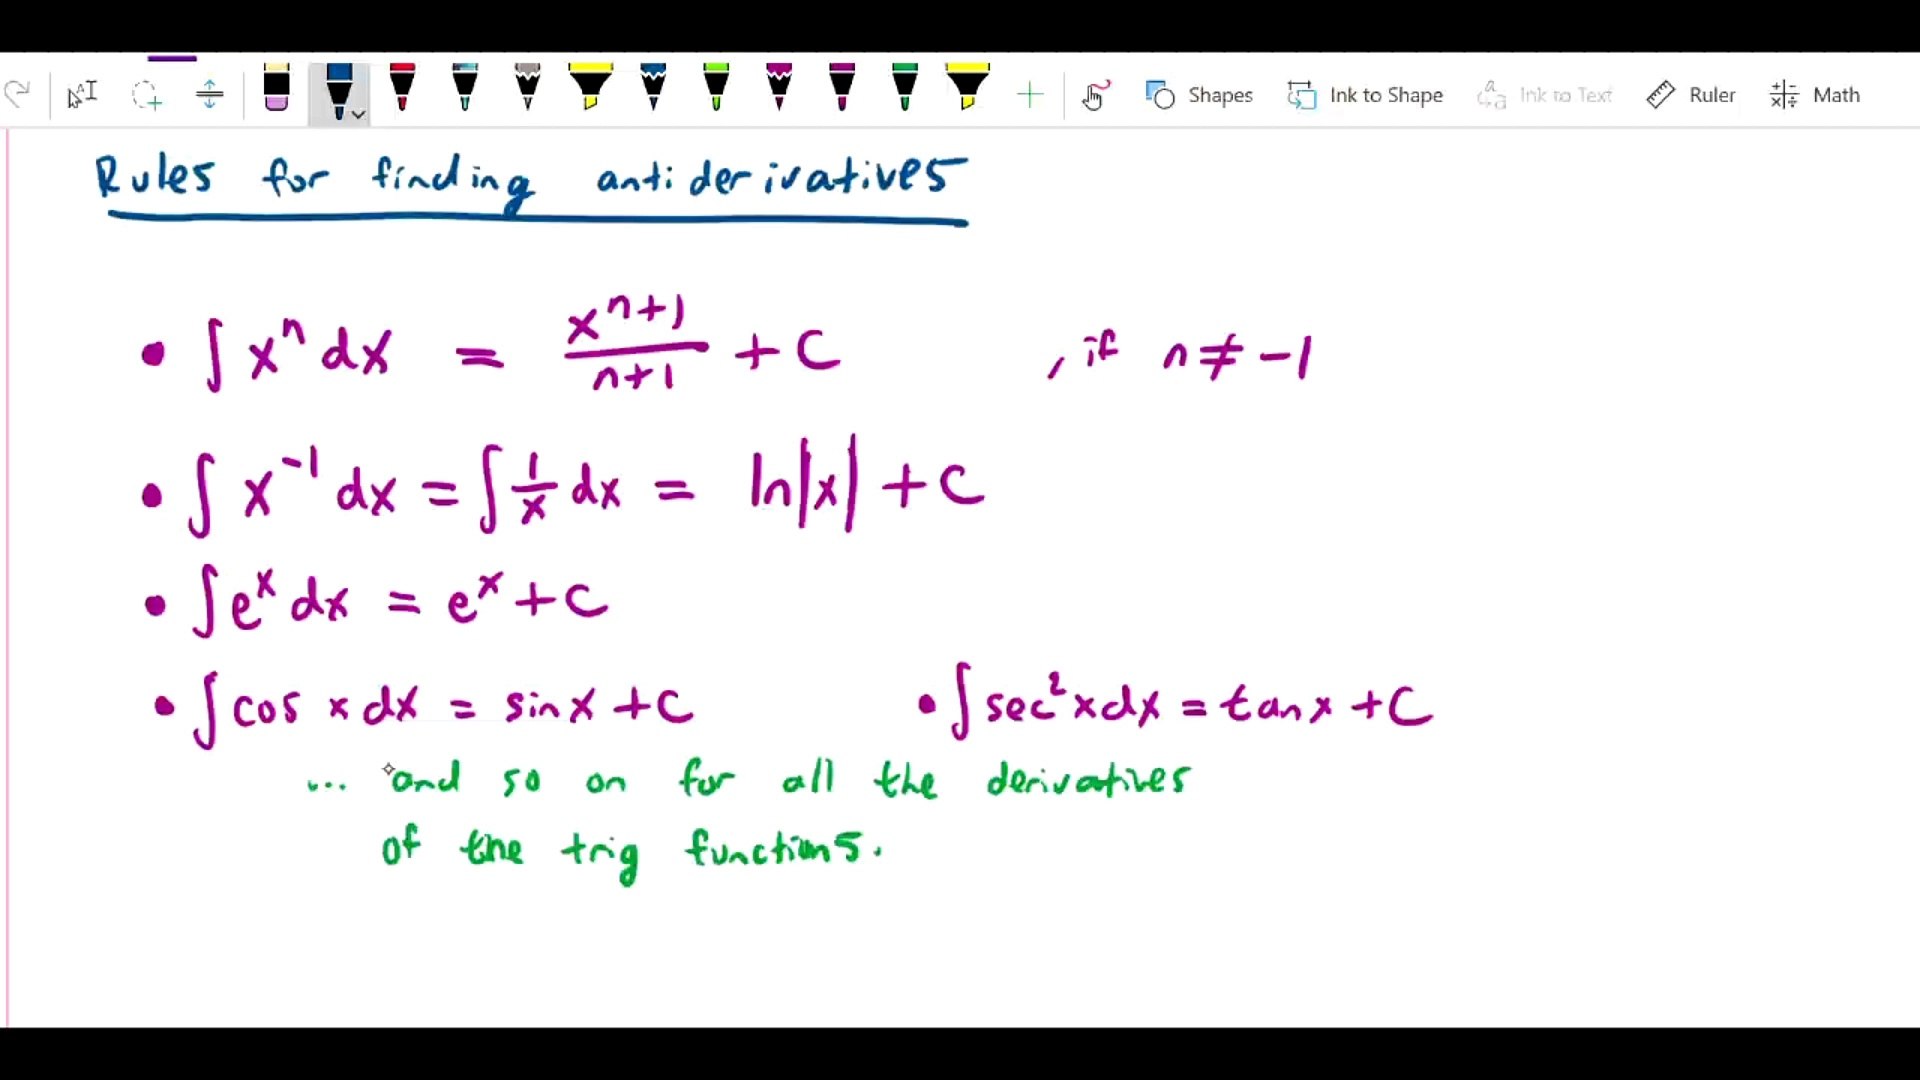 Shapes Ink to Shape Ink to Text Ruler Math
Rules for finding antiderivatives
• ∫ xⁿ dx = xⁿ⁺¹/n+1 + C , if n ≠ -1
• ∫ x⁻¹ dx = ∫ 1/x dx = ln|x| + C
• ∫ eˣ dx = eˣ + C
• ∫ cos x dx = sin x + C • ∫ sec² x dx = tan x + C
... and so on for all the derivatives
of the trig functions.